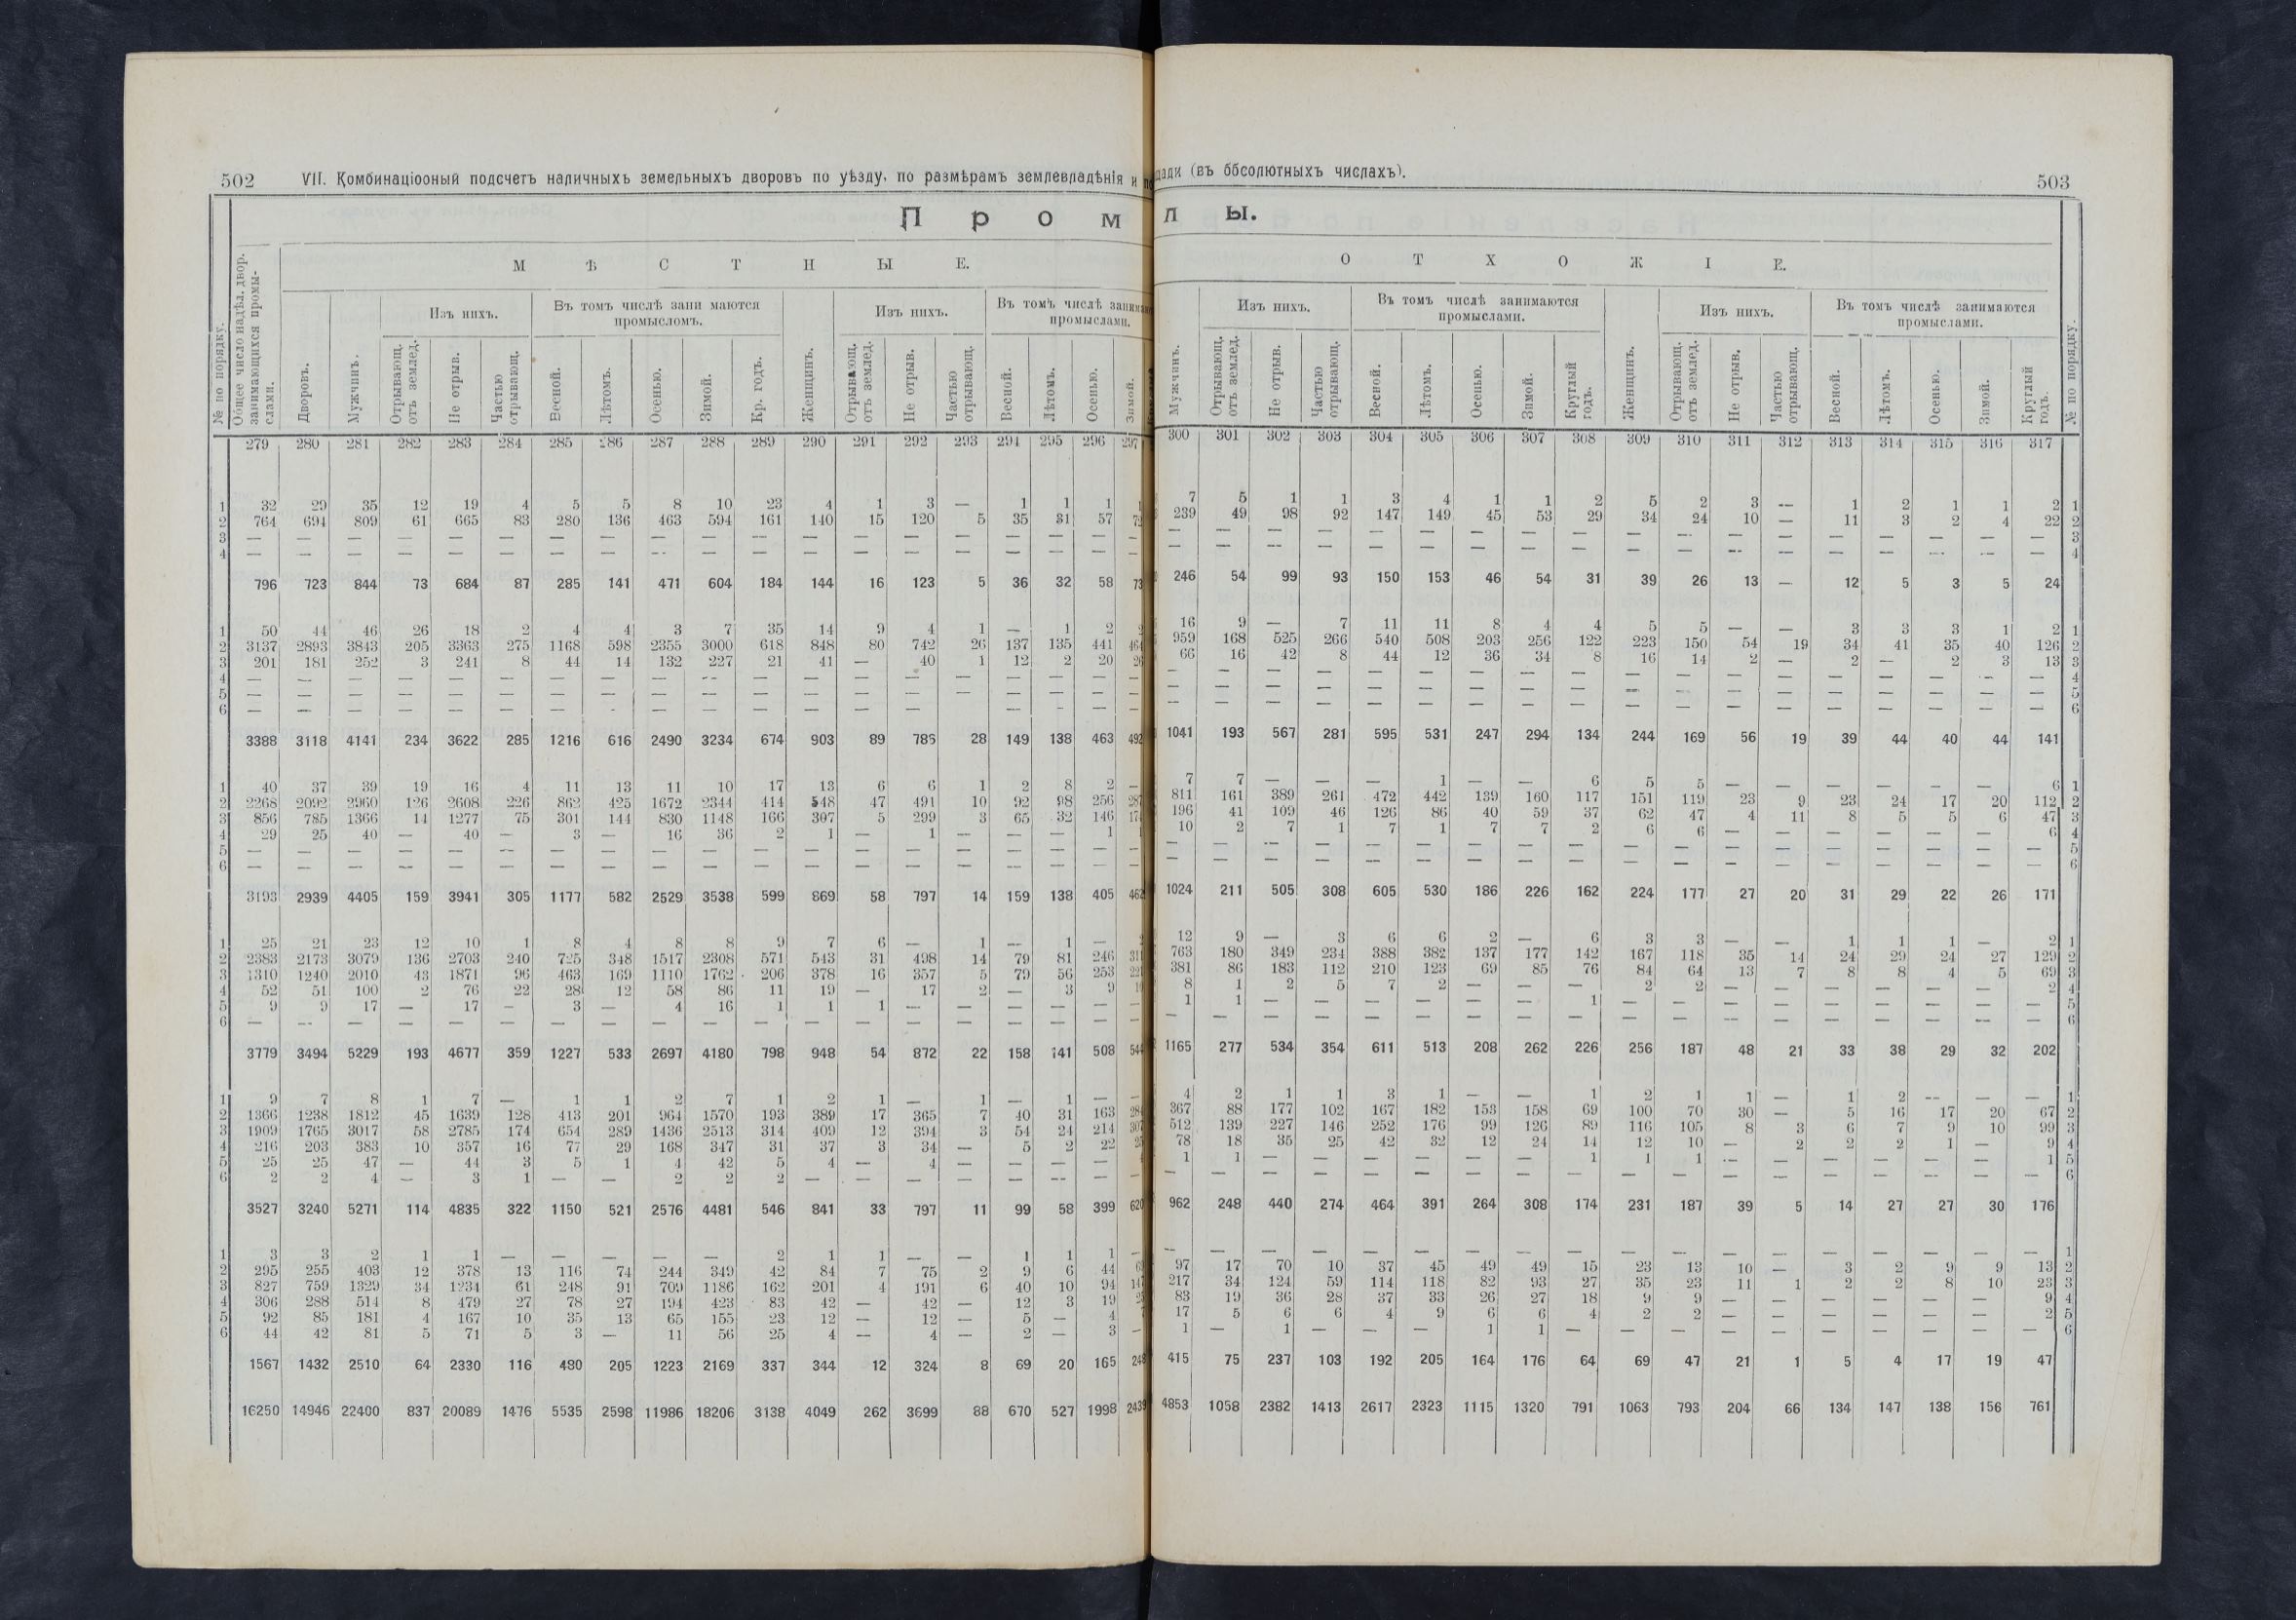 502 VII. Комбинаціооный подсчетъ наличныхъ земельныхъ дворовъ по уѣзду, по размѣрамъ землевладѣнія и
щади (въ ббсолютныхъ числахъ). 503
П р о м
л ы.
М Ѣ С Т Н Ы Е.
О Т Х О Ж І Е.
№ по порядку.
Общее число надѣл. двор. занимающихся промыслами.
Дворовъ.
Мужчинъ.
Изъ нихъ.
Отрывающ. отъ землед.
Не отрыв.
Частью отрывающ.
Въ томъ числѣ зани маются промысломъ.
Весной.
Лѣтомъ.
Осенью.
Зимой.
Кр. годъ.
Женщинъ.
Изъ нихъ.
Отрывающ. отъ землед.
Не отрыв.
Частью отрывающ.
Въ томъ числѣ промыслами.
Весной.
Лѣтомъ.
Осенью.
Зимой.
Мужчинъ.
Изъ нихъ.
Отрывающ. отъ землед.
Не отрыв.
Частью отрывающ.
Въ томъ числѣ занимаются промыслами.
Весной.
Лѣтомъ.
Осенью.
Зимой.
Круглый годъ.
Женщинъ.
Изъ нихъ.
Отрывающ. отъ землед.
Не отрыв.
Частью отрывающ.
Въ томъ числѣ занимаются промыслами.
Весной.
Лѣтомъ.
Осенью.
Зимой.
Круглый годъ.
№ по порядку.
279 280 281 282 283 284 285 286 287 288 289 290 291 292 293 294 295 296 297 300 301 302 303 304 305 306 307 308 309 310 311 312 313 314 315 316 317
1 32 29 35 12 19 4 5 5 8 10 23 4 1 3 — 1 1 1 1 7 5 1 1 3 4 1 1 2 5 2 3 — 1 2 1 1 2 1
2 764 694 809 61 665 83 280 136 463 594 161 140 15 120 5 35 31 57 239 49 98 92 147 149 45 53 29 34 24 10 — 11 3 2 4 22 2
3 — — — — — — — — — — — — — — — — — — — — — — — — — — — — — — — — — — — — — 3
4 — — — — — — — — — — — — — — — — — — — — — — — — — — — — — — — — — — — — — 4
796 723 844 73 684 87 285 141 471 604 184 144 16 123 5 36 32 58 73 246 54 99 93 150 153 46 54 31 39 26 13 — 12 5 3 5 24
1 50 44 46 26 18 2 4 4 3 7 35 14 9 4 1 — 1 2 16 9 — 7 11 11 8 4 4 5 5 — — 3 3 3 1 2 1
2 3137 2893 3843 205 3363 275 1168 598 2355 3000 618 848 80 742 26 137 135 441 464 959 168 525 266 540 508 203 256 122 223 150 54 19 34 41 35 40 126 2
3 201 181 252 3 241 8 44 14 132 227 21 41 — 40 1 12 2 20 26 66 16 42 8 44 12 36 34 8 16 14 2 — 2 — 2 3 13 3
4 — — — — — — — — — — — — — — — — — — — — — — — — — — — — — — — — — — — — — 4
5 — — — — — — — — — — — — — — — — — — — — — — — — — — — — — — — — — — — — — 5
6 — — — — — — — — — — — — — — — — — — — — — — — — — — — — — — — — — — — — 6
3388 3118 4141 234 3622 285 1216 616 2490 3234 674 903 89 785 28 149 138 463 492 1041 193 567 281 595 531 247 294 134 244 169 56 19 39 44 40 44 141
1 40 37 39 19 16 4 11 13 11 10 17 13 6 6 1 2 8 2 — 7 7 — — — 1 — — 6 5 5 — — — — — — 6 1
2 2268 2092 2960 126 2608 226 862 425 1672 2344 414 548 47 491 10 92 98 256 287 811 161 389 261 472 442 139 160 117 151 119 23 9 23 24 17 20 112 2
3 856 785 1366 14 1277 75 301 144 830 1148 166 307 5 299 3 65 32 146 196 41 109 46 126 86 40 59 37 62 47 4 11 8 5 5 6 47 3
4 29 25 40 — 40 — 3 — 16 36 2 1 — 1 — — — 1 10 2 7 1 7 1 7 7 2 6 6 — — — — — — 6 4
5 — — — — — — — — — — — — — — — — — — — — — — — — — — — — — — — — — — — — — 5
6 — — — — — — — — — — — — — — — — — — — — — — — — — — — — — — — — — — — — — 6
3193 2939 4405 159 3941 305 1177 582 2529 3538 599 869 58 797 14 159 138 405 462 1024 211 505 308 605 530 186 226 162 224 177 27 20 31 29 22 26 171
1 25 21 23 12 10 1 8 4 8 8 9 7 6 — 1 — 1 — 12 9 — 3 6 6 2 — 6 3 3 — — 1 1 1 — 2 1
2 2383 2173 3079 136 2703 240 725 348 1517 2308 571 543 31 498 14 79 81 246 311 763 180 349 234 388 382 137 177 142 167 118 35 14 24 29 24 27 129 2
3 1310 1240 2010 43 1871 96 463 169 1110 1762 206 378 16 357 5 79 56 253 381 86 183 112 210 123 69 85 76 84 64 13 7 8 8 4 5 69 3
4 52 51 100 2 76 22 28 12 58 86 11 19 — 17 2 — 3 9 8 1 2 5 7 2 — — — 2 2 — — — — — — 2 4
5 9 9 17 — 17 — 3 — 4 16 1 1 1 — — — — — — 1 1 — — — — — — 1 — — — — — — — — — 5
6 — — — — — — — — — — — — — — — — — — — — — — — — — — — — — — — — — — — — — 6
3779 3494 5229 193 4677 359 1227 533 2697 4180 798 948 54 872 22 158 141 508 544 1165 277 534 354 611 513 208 262 226 256 187 48 21 33 38 29 32 202
1 9 7 8 1 7 — 1 1 2 7 1 2 1 — 1 — 1 — — 4 2 1 1 3 1 — — 1 2 1 1 — 1 2 — — — 1
2 1366 1238 1812 45 1639 128 413 201 964 1570 193 389 17 365 7 40 31 163 284 367 88 177 102 167 182 153 158 69 100 70 30 — 5 16 17 20 67 2
3 1909 1765 3017 58 2785 174 654 289 1436 2513 314 409 12 394 3 54 24 214 307 512 139 227 146 252 176 99 126 89 116 105 8 3 6 7 9 10 99 3
4 216 203 383 10 357 16 77 29 168 347 31 37 3 34 — 5 2 22 78 18 35 25 42 32 12 24 14 12 10 — 2 2 2 1 — 9 4
5 25 25 47 — 44 3 5 1 4 42 5 4 — 4 — — — — 1 1 — — — — — — 1 1 1 — — — — — — 1 5
6 2 2 4 — 3 1 — — 2 2 2 — — — — — — — — — — — — — — — — — — — — — — — — — — 6
3527 3240 5271 114 4835 322 1150 521 2576 4481 546 841 33 797 11 99 58 399 620 962 248 440 274 464 391 264 308 174 231 187 39 5 14 27 27 30 176
1 3 3 2 1 1 — — — — — 2 1 1 — — 1 1 1 — — — — — — — — — — — — — — — — — — — 1
2 295 255 403 12 378 13 116 74 244 349 42 84 7 75 2 9 6 44 97 17 70 10 37 45 49 49 15 23 13 10 — 3 2 9 9 13 2
3 827 759 1329 34 1234 61 248 91 709 1186 162 201 4 191 6 40 10 94 217 34 124 59 114 118 82 93 27 35 23 11 1 2 2 8 10 23 3
4 306 288 514 8 479 27 78 27 194 423 83 42 — 42 — 12 3 19 83 19 36 28 37 33 26 27 18 9 9 — — — — — — 9 4
5 92 85 181 4 167 10 35 13 65 155 23 12 — 12 — 5 — 4 17 5 6 6 4 9 6 6 4 2 2 — — — — — — 2 5
6 44 42 81 5 71 5 3 — 11 56 25 4 — 4 — 2 — 3 — 1 — 1 — — — 1 1 — — — — — — — — — — 6
1567 1432 2510 64 2330 116 480 205 1223 2169 337 344 12 324 8 69 20 165 248 415 75 237 103 192 205 164 176 64 69 47 21 1 5 4 17 19 47
16250 14946 22400 837 20089 1476 5535 2598 11986 18206 3138 4049 262 3699 88 670 527 1998 2439 4853 1058 2382 1413 2617 2323 1115 1320 791 1063 793 204 66 134 147 138 156 761